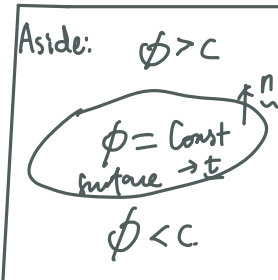 Aside: ϕ > C
n
ϕ = Const
surface → t
ϕ < C.